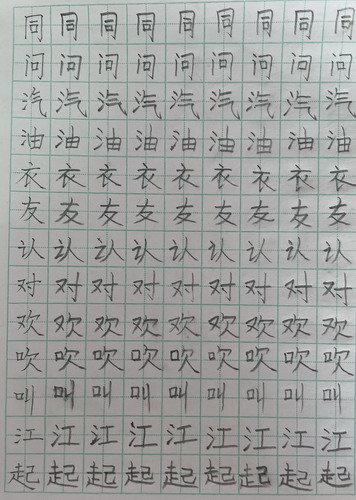 同同同同同同同同同
问问问问问问问问问
汽汽汽汽汽汽汽汽汽
油油油油油油油油油
衣衣衣衣衣衣衣衣衣
友友友友友友友友友
认认认认认认认认认
对对对对对对对对对
欢欢欢欢欢欢欢欢欢
吹吹吹吹吹吹吹吹吹
叫叫叫叫叫叫叫叫叫
江江江江江江江江江
起起起起起起起起起